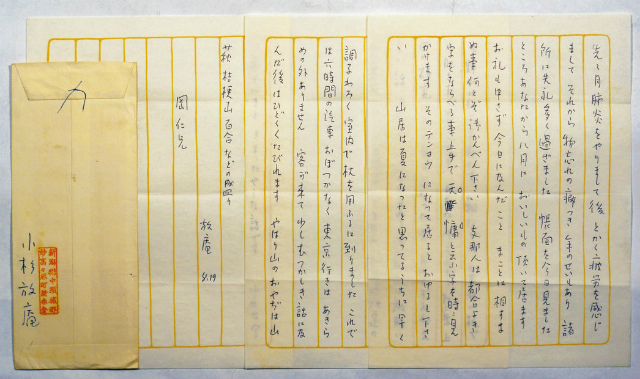 先々月肺炎をやりまして後とかく疲労を感じ
まして それから物忘れの癖つき 年のせいもあり 諸
所に失礼多く過ぎました 帳面を今日見ました
ところあなたから八月に おいしいもの頂いて居ます
お礼も申さず今日になんだこと まことに相すま
ぬ事何とぞ御かんべん下さい 支那人は都合よき
字をならべる事上手で 天慵と云ふ字を時々見
かけます そのテンヨウ になって居ると おぼし下さ
い 山居は夏になったと思ってるうちに早く
調子わろく 室内で杖を用ふるに到りました これで
は六時間の汽車おぼつかなく 東京行きはあきら
めの外ありません 客が来て少しむつかしき話に及
んだ後はひどくくたびれます やはり山のおやぢは山
萩 桔梗 山百合などの盛り
放庵
9.19
岡仁兄
新潟県中頸城郡
妙高高原町赤倉
小杉放庵